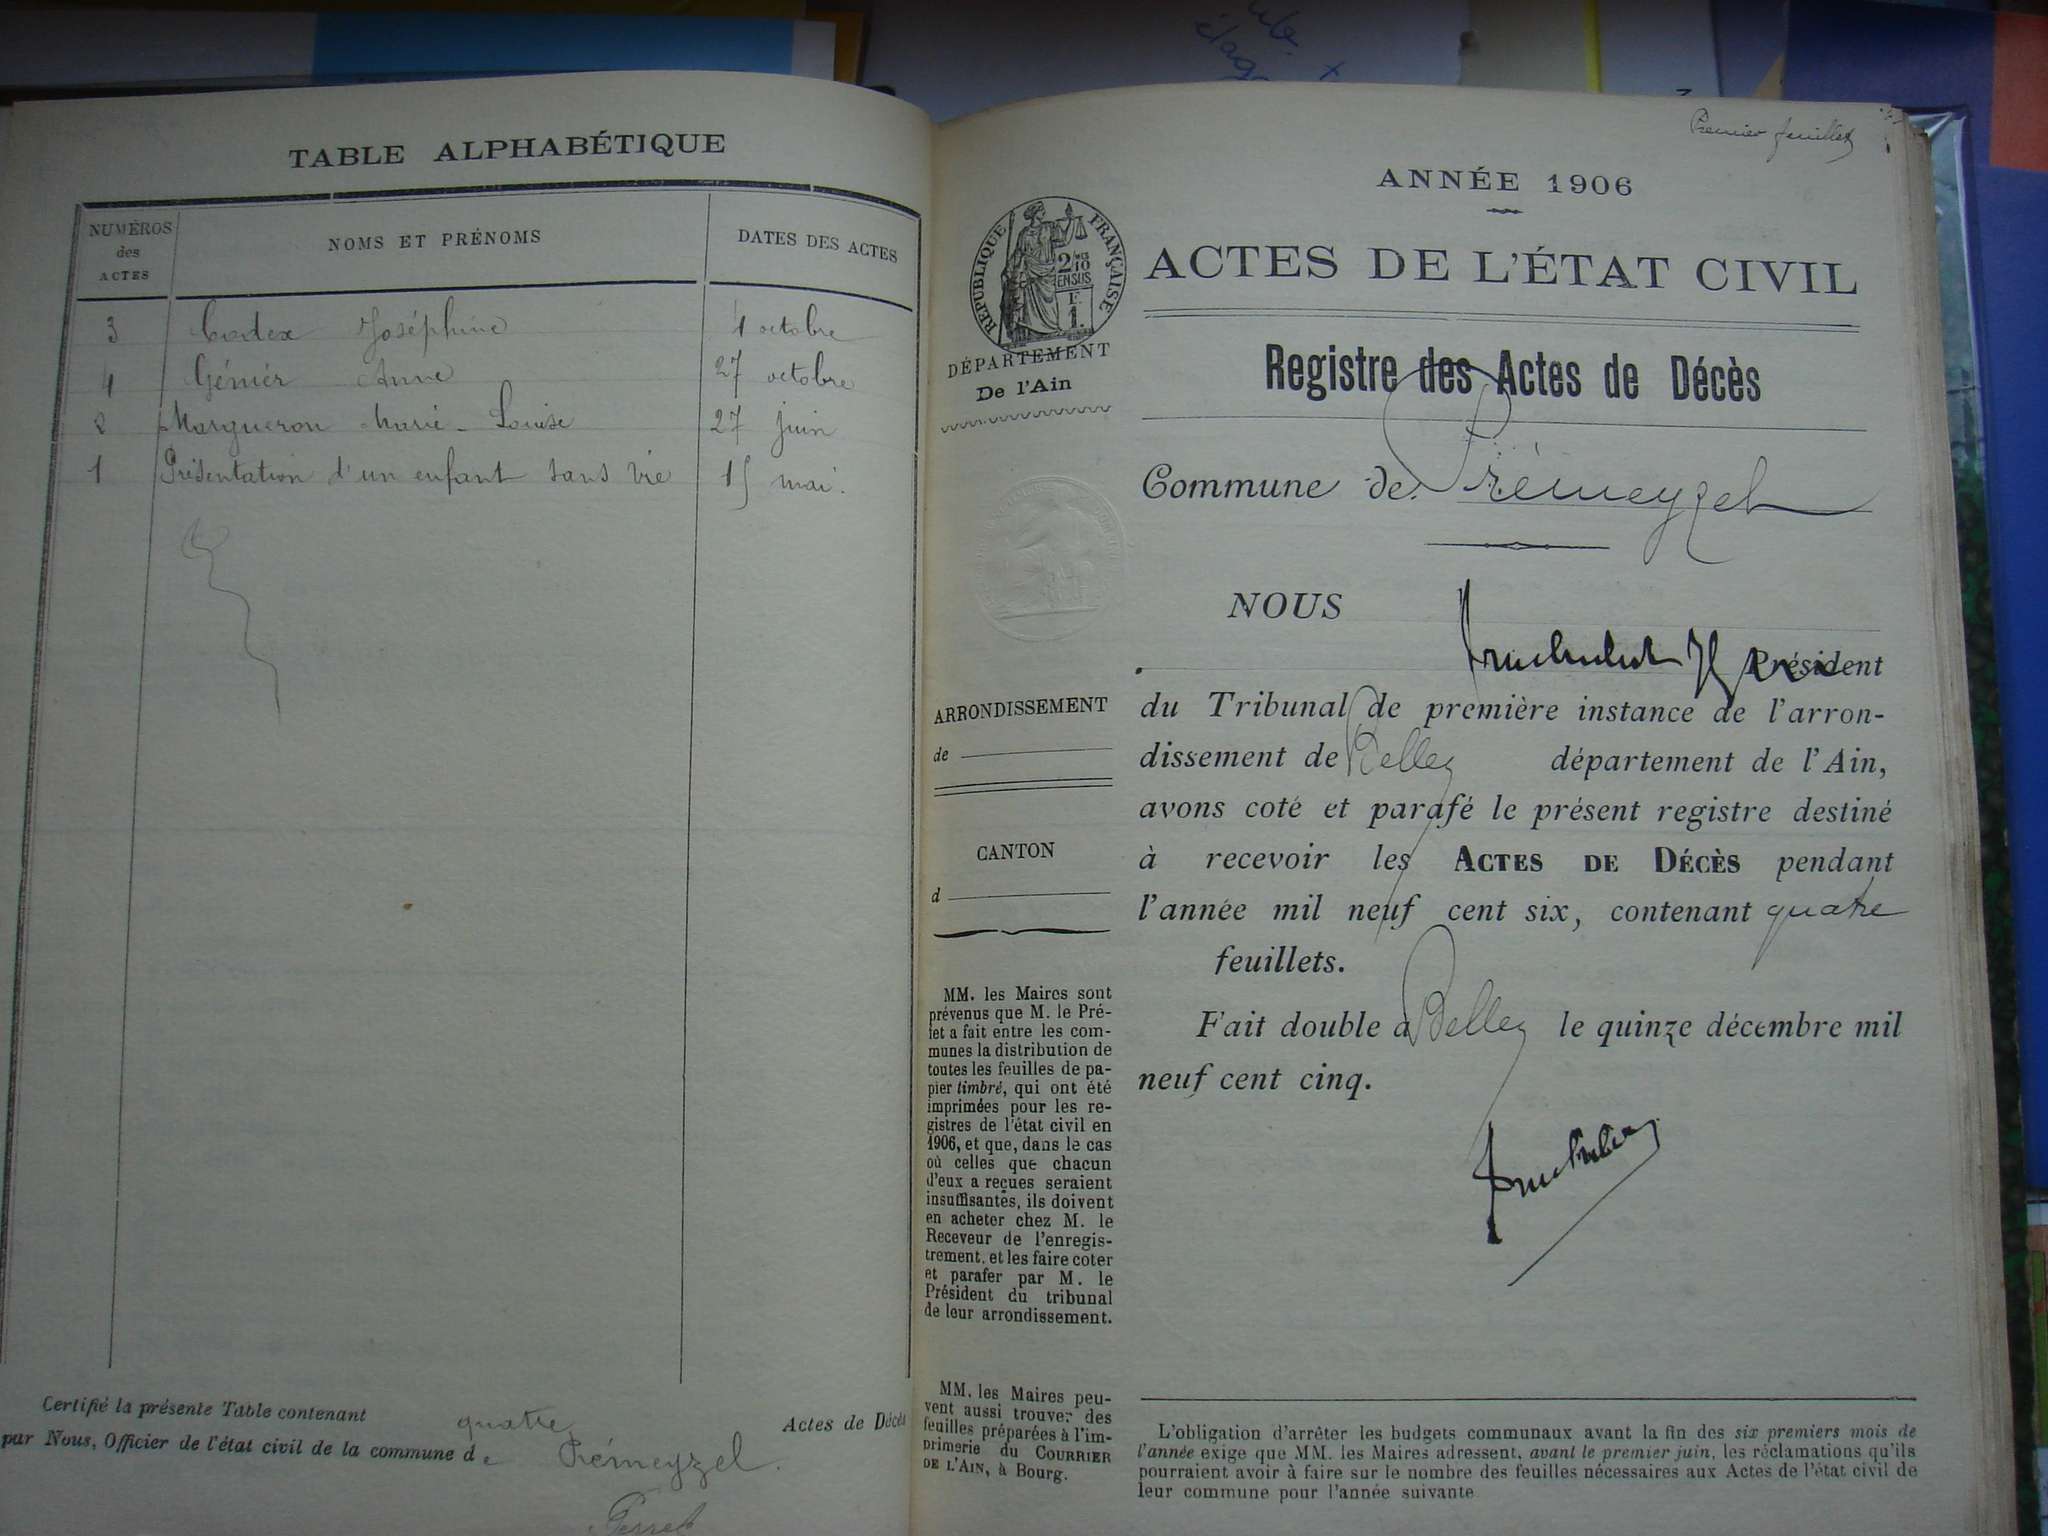 TABLE ALPHABÉTIQUE
NUMÉROS
des
ACTES
NOMS ET PRÉNOMS
DATES DES ACTES
3 Joséphine 1 octobre
4 Génier Anne 27 octobre
2 Margueron Marie-Louise 27 juin
1 Présentation d'un enfant sans vie 15 mai.
Certifié la présente Table contenant quatre Actes de Décès
par Nous, Officier de l'état civil de la commune de Prémeyzel.
Perret
Premier feuillet
ANNÉE 1906
RÉPUBLIQUE FRANÇAISE
2/10
EN SUS
1 F.
ACTES DE L'ÉTAT CIVIL
DÉPARTEMENT
De l'Ain
Registre des Actes de Décès
Commune de Prémeyzel
NOUS
Président
du Tribunal de première instance de l'arron-
dissement de Belley département de l'Ain,
avons coté et parafé le présent registre destiné
à recevoir les ACTES DE DÉCÈS pendant
l'année mil neuf cent six, contenant quatre
feuillets.
Fait double à Belley le quinze décembre mil
neuf cent cinq.
ARRONDISSEMENT
de
CANTON
d
MM. les Maires sont
prévenus que M. le Pré-
fet a fait entre les com-
munes la distribution de
toutes les feuilles de pa-
pier timbré, qui ont été
imprimées pour les re-
gistres de l'état civil en
1906, et que, dans le cas
où celles que chacun
d'eux a reçues seraient
insuffisantes, ils doivent
en acheter chez M. le
Receveur de l'enregis-
trement, et les faire coter
et parafer par M. le
Président du tribunal
de leur arrondissement.
MM. les Maires peu-
vent aussi trouver des
feuilles préparées à l'im-
primerie du COURRIER
DE L'AIN, à Bourg.
L'obligation d'arrêter les budgets communaux avant la fin des six premiers mois de
l'année exige que MM. les Maires adressent, avant le premier juin, les réclamations qu'ils
pourraient avoir à faire sur le nombre des feuilles nécessaires aux Actes de l'état civil de
leur commune pour l'année suivante